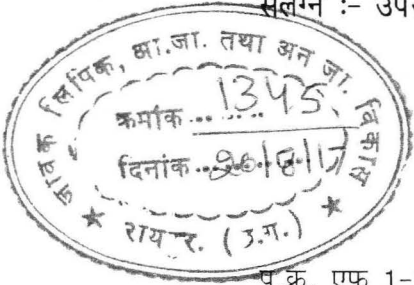 संलग्न :- उपर
जावक लिपिक, आ.जा. तथा अनु जा. विकास
क्रमांक ..1345
दिनांक ..26/8/17
★ रायपुर. (छ.ग.) ★
प.क्र. एफ 1-